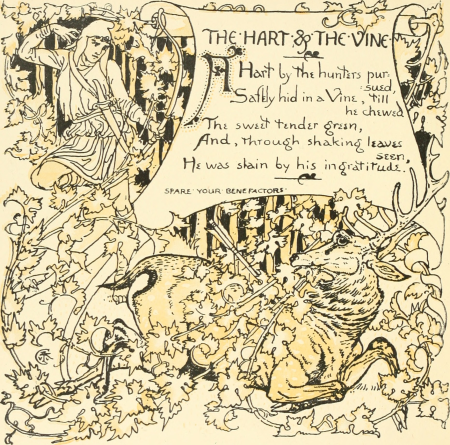 THE · HART · & · THE · VINE
A Hart by the hunters pur-
sued,
Safely hid in a Vine, till
he chewed
The sweet tender green,
And, through shaking leaves
seen,
He was slain by his ingratitude.
SPARE · YOUR · BENEFACTORS ·